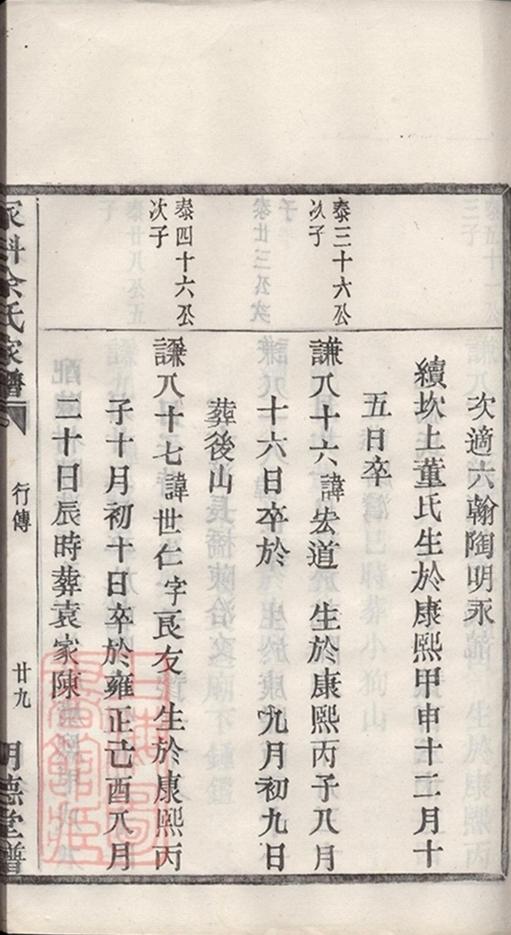 次適六翰陶明永
續坎上董氏生於康熙甲申十二月十
五日卒
泰三十六公
次子
謙八十六諱宏道 生於康熙丙子八月
十六日卒於 九月初九日
葬後山
泰四十六公
次子
謙八十七諱世仁字良友生於康熙丙
子十月初十日卒於雍正己酉八月
二十日辰時葬袁家陳
余氏家譜
行傳
廿九
明德堂譜